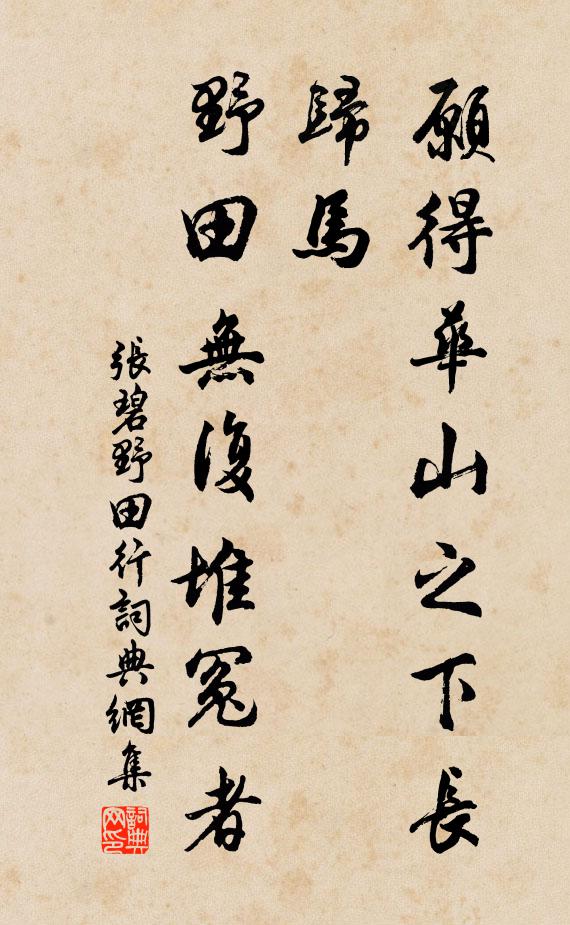 願得華山之下長
歸馬
野田無復堆冤者
張碧野田行詞典網集
詞典网印